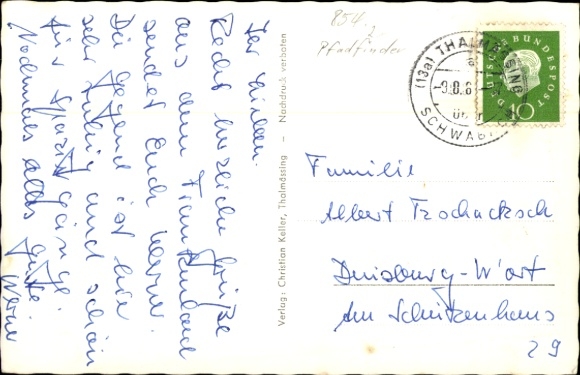 Ihr Lieben.
Recht herzliche Grüße
aus dem Frankenland
sendet Euch Werner.
Die Gegend ist hier
sehr ruhig und schön
für Spaziergänge.
Nochmals alles Gute
Werner
Verlag: Christian Keller, Thalmässing — Nachdruck verboten
854
Pfadfinder
(13a) THALMÄSSING
SCHWAB
DEUTSCHE BUNDESPOST
10
Familie
Albert Tschacksch
Duisburg-W'ort
Am Schützenhaus
29